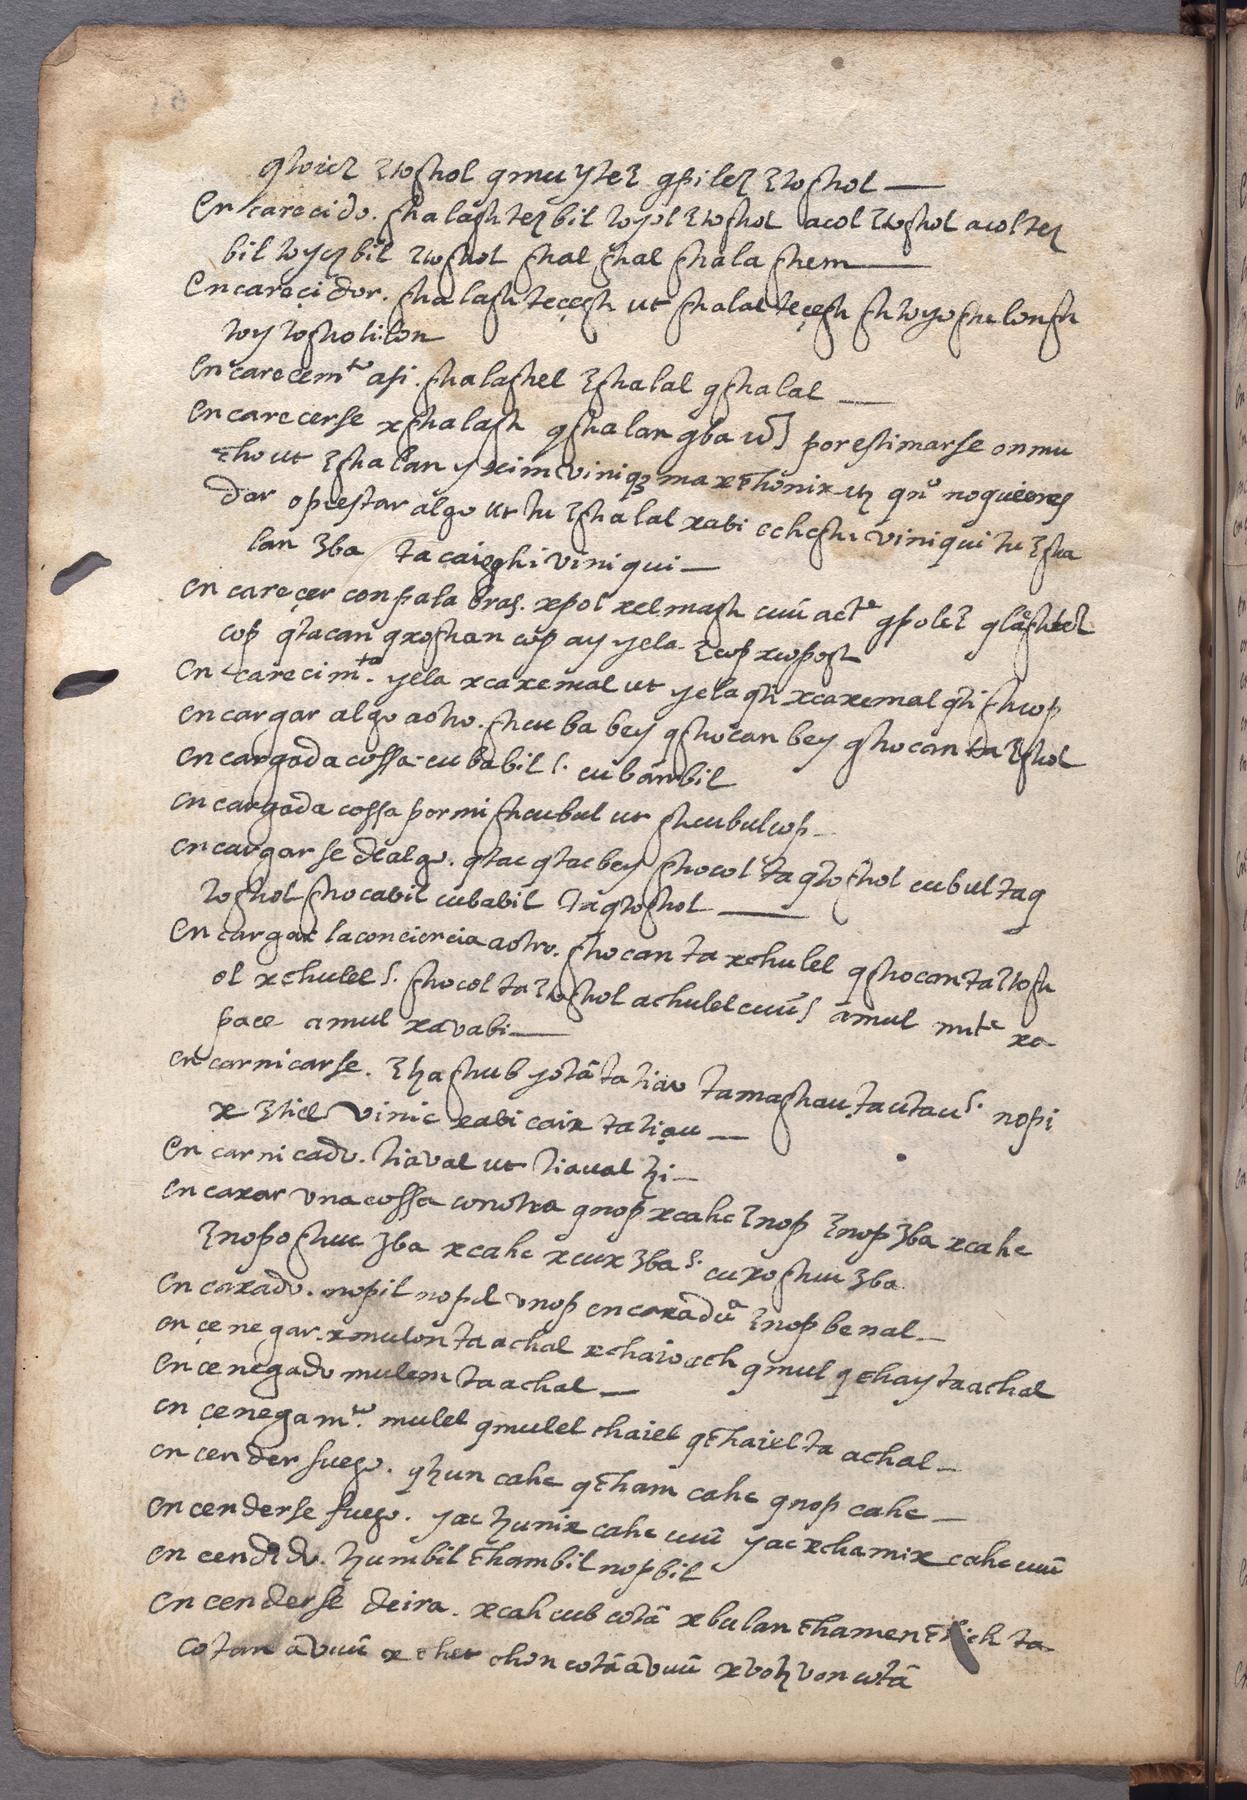 qtoiez ztoghol qmuytez gpilez ztoghol —
Encarecido. ghalaghtezbil toyol ztoghol acol ztoghol acoltez
bil toyezbil ztoghol ghal ghal ghala ghem —
Encareçidor. ghalaghteçegh ut ghalalteçegh ghtoyoghelongh
toytogholilon
Encarecemto asi. ghalaghel zghalal qghalal —
Encarecerse xghalagh qghalan gba porestimarse onmu
cho ut zghalan y xcim viniq max noquieres
dar oprestar algo ut tu zghalal xabi echeghe viniqui tu zgha
lan zba tacaioghi viniqui —
Encareçer conpalabras. xpol xelmagh cuu actª gpolez
cop qtacan qxoghan cop ay yela. zcop xcopogh
Encarecimto. yela xcaxemal ut yela qti xcaxemal qti ghcop
Encargar algo aotro. ghcuba bey qghocan bey qhocan ta zghol
Encargada cossa. cubabil s. cubanbil
Encargada cossa pormi ghcubul ut ghcubulcop —
Encargarse dealgo. qtac qtacbey ghocol taqtoghol cubul taq
toghol ghocabil cubabil taqtoghol —
Encargar laconciencia aotro. ghocan ta xchulel qghocanta ztogh
ol xchulel s. ghocol ta ztoghol achulel cuu s amul milc xa
pace amul xavabi —
Encarnicarse. zhaghub yotā ta tiav tamaghau, tautau s. nopi
x ztiel vinic xabi caix ta tiau —
Encarnicado. tiaval ut tiaual hi —
Encaxar vna cossa conotra qnop xcahc znop znop zba xcahc
znopoghuc zba xcahc xcux zba s. cuxoghuc zba
Encaxado. nopil nopol vnop encaxadura znop benal —
Ençenegar. xmulon ta achal xchaiv ach qmul qchay ta achal
Encenegado mulem ta achal —
Ençenegamto. mulel qmulel chaiel qchaiel ta achal —
Encender fuego. qhun cahc qcham cahc qnop cahc —
Encenderse fuego. yac hunix cahc cuū yac xchamix cahc cuū
Encendido. humbil chambil nopbil
Encenderse deira. xcahcub cotā xbulan chamen ta
cotan avuū x chet chon cotā avuū xvoh von cotā